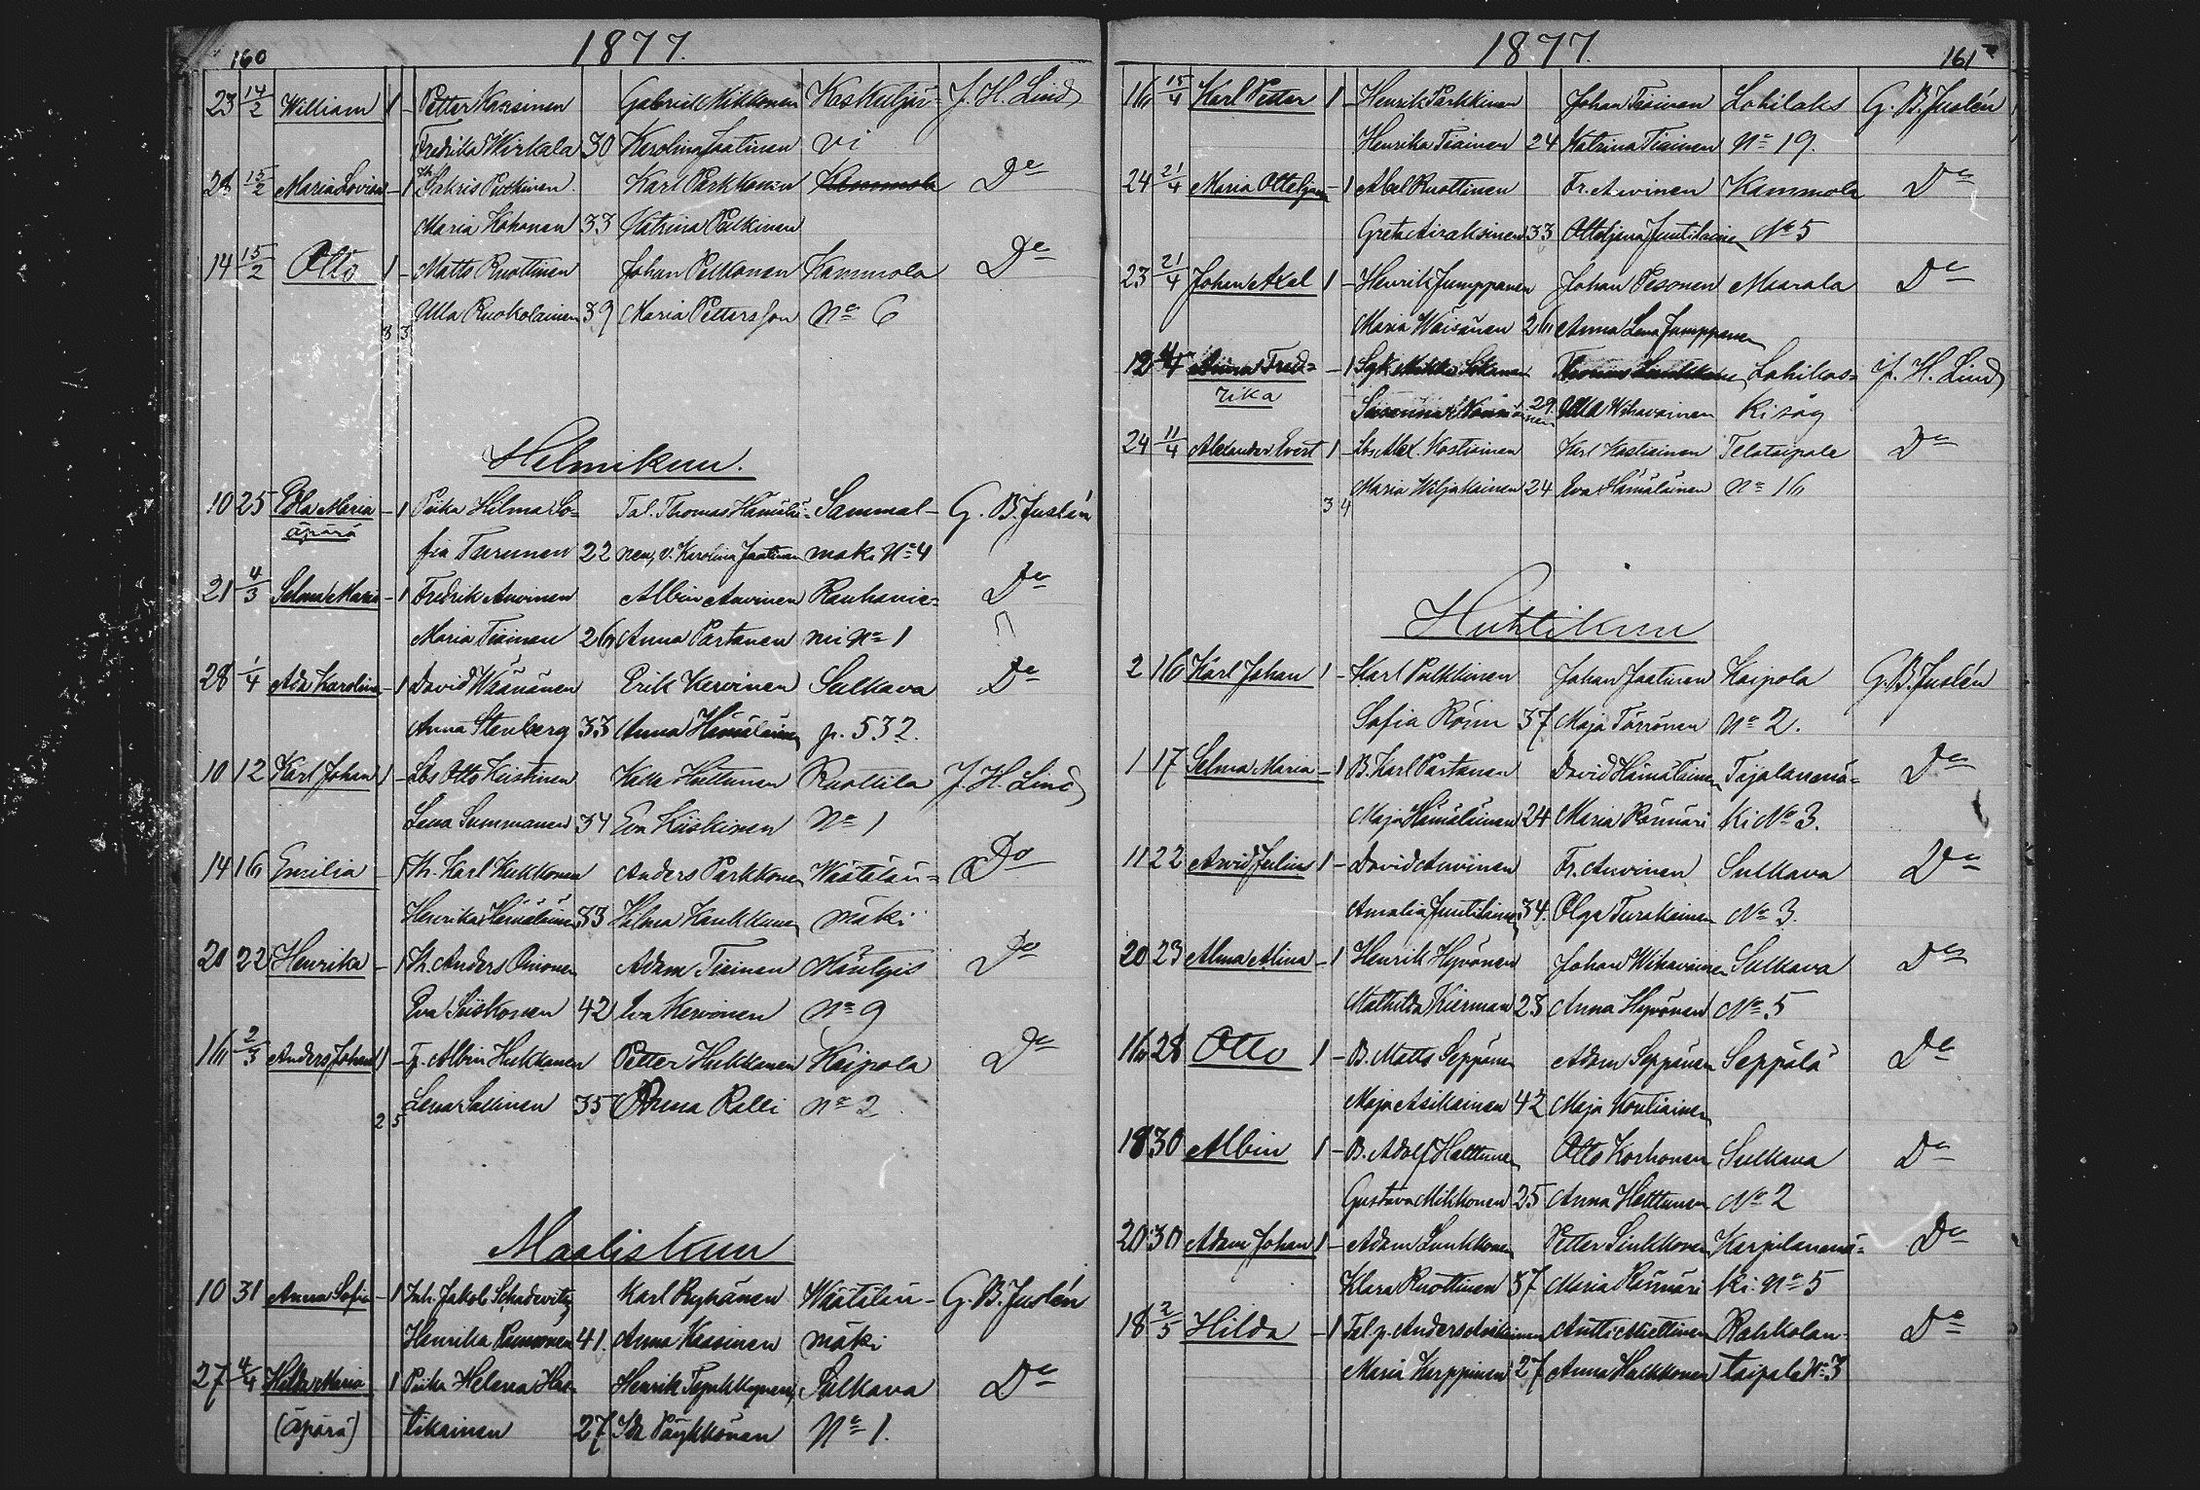 160
1877.
23 14/2 William 1 - Petter Karsinen Gabriel Mikkonen J. H. Lind
Fredrika Wirkala 30 Karolina Jaatinen vi
15/2 Maria Lovisa - 1 Zakris Karl Parkkonen Kammola Do
Maria Kohonen 33 Katrina
14 15/2 Otto 1 - Matts Ruottinen Johan Pekkonen Kammola Do
Ulla Ruokolainen 39 Maria Pettersson No 6
8 3
Helmikuu.
10 25 Maria - 1 Piika Hilma So= Tal. Thomas Hämäläi= Sammal- G. B. Juslén
äpärä fia Turunen 22 nen, v. Karolina Jaatinen mäki No 4
21 4/3 Selma Maria - 1 Fredrik Auvinen Albin Auvinen Rauhanie= Do
Maria Tiainen 26 Anna Partanen mi No 1
28 1/4 Ada Karolina - 1 David Väänänen Erik Kervinen Sulkava Do
Anna Stenberg 33 Anna Hämäläinen p. 532.
10 12 Karl Johan 1 - Lbs Otto Kiiskinen Kalle Hattunen Ruottila J. H. Lind
Lena Summanen 34 Eva Kiiskinen No 1
14 16 Emilia - 1 Th. Karl Kukkonen Anders Parkkonen Wäätälän= Do
Henrika Hämäläinen 33 Hilma Kaukkonen mäki
20 22 Henrika - 1 Th. Anders Adam Tiainen Do
Eva Siiskonen 42 Eva Kervinen No 9
16 2/3 Anders Johan 1 - Albin Hukkanen Petter Hukkanen Kaipola Do
Lena Sallinen 35 Anna Ralli No 2
2 5
Maaliskuu
10 31 Anna Sofia - 1 Inh. Jakob Schadevitz Karl Ryhänen Wäätälän- G. B. Juslén
Henrika 41 Anna Kassinen mäki
27 4/4 Hilda Maria 1 Piika Helena Has- Henrik Sulkava Do
(äpärä) tikainen 27 Ida Pöyhkönen No 1.
161
1877.
16 15/4 Karl Petter 1 - Henrik Parkkinen Johan Tiainen Lohilaks G. B. Juslén
Henrika Tiainen 24 Katrina Tiainen No 19.
24 21/4 Maria - 1 Abel Ruottinen Fr. Auvinen Kammola Do
Greta Airaksinen 33 Juutilainen No 5
23 21/4 Johan Axel 1 - Henrik Jumppanen Johan Pesonen Maarala Do
Maria Wäisänen 26 Anna Lena Jumppanen
12 Anna Fred= - 1 Lohikos= J. H. Lind
rika 29 Ulla Wihavainen ki såg
24 11/4 Alexander Evert 1 - Lbs Alex. Kostiainen Karl Kostiainen Telataipale Do
Maria Wiljakainen 24 Eva Hämäläinen No 16
3 4
Huhtikuu
2 16 Karl Johan 1 - Karl Pulkkinen Johan Jaatinen Kaipola G. B. Juslén
Sofia 37 Maja Törrönen No 2.
1 17 Selma Maria - 1 B. Karl Partanen David Hämäläinen Do
Maja Hämäläinen 24 Maria ki No 3.
11 22 Arvid Julius 1 - David Auvinen Fr. Auvinen Sulkava Do
Amalia Juutilainen 34 Olga Turakainen No 3.
20 23 Alma Alina - 1 Henrik Hyvönen Johan Wihavainen Sulkava Do
Mathilda 23 Anna Hyvönen No. 5
16 28 Otto 1 - B. Matts Seppänen Adam Seppänen Seppälä Do
Maja Asikainen 42 Maja
18 30 Albin 1 - B. Adolf Hattunen Otto Korhonen Sulkava Do
Gustava Mikkonen 25 Anna Hattunen No 2
20 30 Adam Johan 1 - Adam Luukkonen Petter Karjulanmä= Do
Klara Ruottinen 37 Maria ki. No 5
18 2/5 Hilda - 1 Tal. p. Anders Antti Miettinen Rakkolan- Do
Maria Karppinen 27 Anna Hukkonen taipale No 3